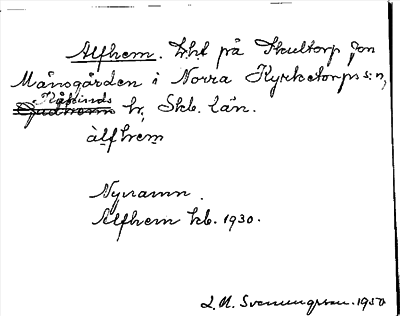 Alfhem. Lht på Skultorp från
Månsgården i Norra Kyrketorps s:n,
Kåkinds
Gudhems hd, Skb. län.
àlfhem
Nynamn.
Alfhem kb. 1930.
L. M. Svenungsson. 1950